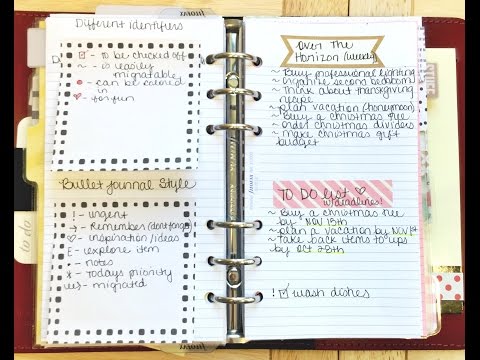 Different Identifiers
☑ - to be checked off
~ - is easily
migratable
● - can be colored
in
♡ - for fun
Bullet Journal Style
! - urgent
→ - Remember (dont forget)
♡ - inspiration/ideas
E - explore item
- notes
* - todays priority
- migrated
to do
filofax
Over The
Horizon (weekly)
~ Buy professional lighting
~ Organize second bedroom
~ Think about thanksgiving
recipe
~ plan vacation (honeymoon)
~ Buy a christmas tree
~ order christmas dividers
~ make christmas gift
budget
TO DO list ♡
w/deadlines!
~ Buy a christmas tree
by NOV 15th
~ plan a vacation by NOV 19
~ Take back items to ups
by Oct 28th
! ☑ wash dishes